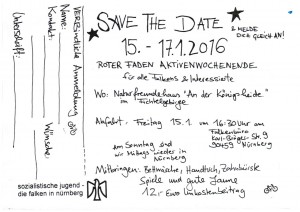 SAVE THE DATE
& MELDE
DICH GLEICH AN!
15. - 17.1.2016
ROTER FADEN AKTIVENWOCHENENDE
für alle Falken & Interessierte
Wo: Naturfreundehaus "An der Königsheide"
im Fichtelgebirge
Abfahrt: Freitag 15.1. um 16:30 Uhr am
Falkenbüro
Karl-Bröger-Str. 9
90459 Nürnberg
am Sonntag sind
wir Mittags wieder in
Nürnberg
Mitbringen: Bettwäsche, Handtuch, Zahnbürste
Spiele und gute Laune
12.- Euro Unkostenbeitrag
VERBindliche Anmeldung
Name:
Kontakt:
Wünsche:
Unterschrift:
sozialistische jugend -
die falken in nürnberg